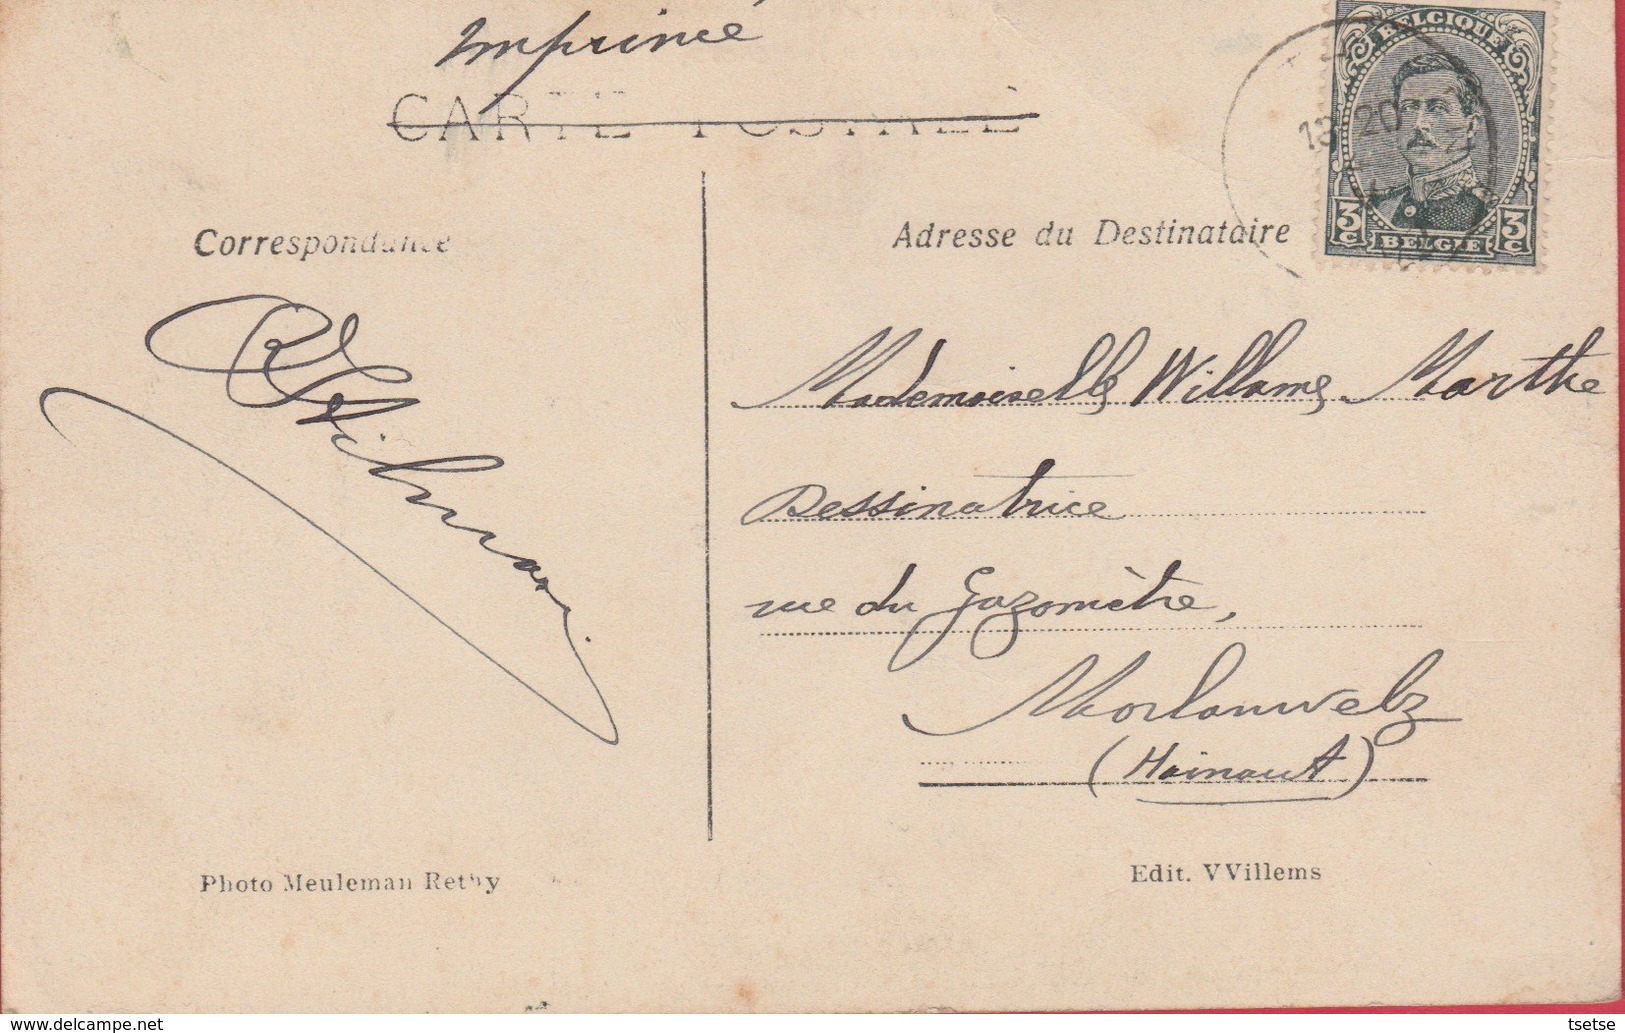 Imprimé
CARTE POSTALE
BELGIQUE
3c BELGIE 3c
13 20
Correspondance
Adresse du Destinataire
Mademoiselle Willame Marthe
Dessinatrice
rue du Gazomètre,
Morlanwelz
(Hainaut)
Photo Meuleman Rethy
Edit. VVillems
tsetse